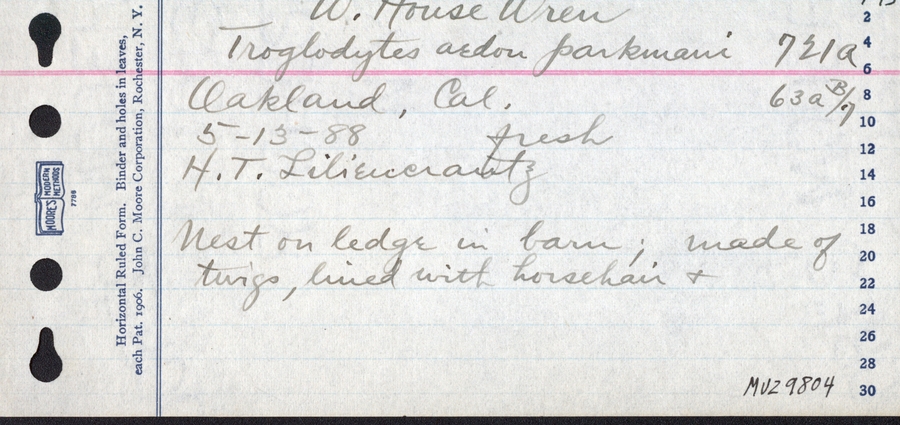 W. House Wren
Troglodytes aedon parkmani 721a
Oakland, Cal. 63a B/7
5-13-88 fresh
H. T. Liliencrantz
Nest on ledge in barn; made of
twigs, lined with horsehair +
MVZ 9804
2
4
6
8
10
12
14
16
18
20
22
24
26
28
30
Horizontal Ruled Form. Binder and holes in leaves,
each Pat. 1906. John C. Moore Corporation, Rochester, N. Y.
MOORE'S MODERN METHODS
7786